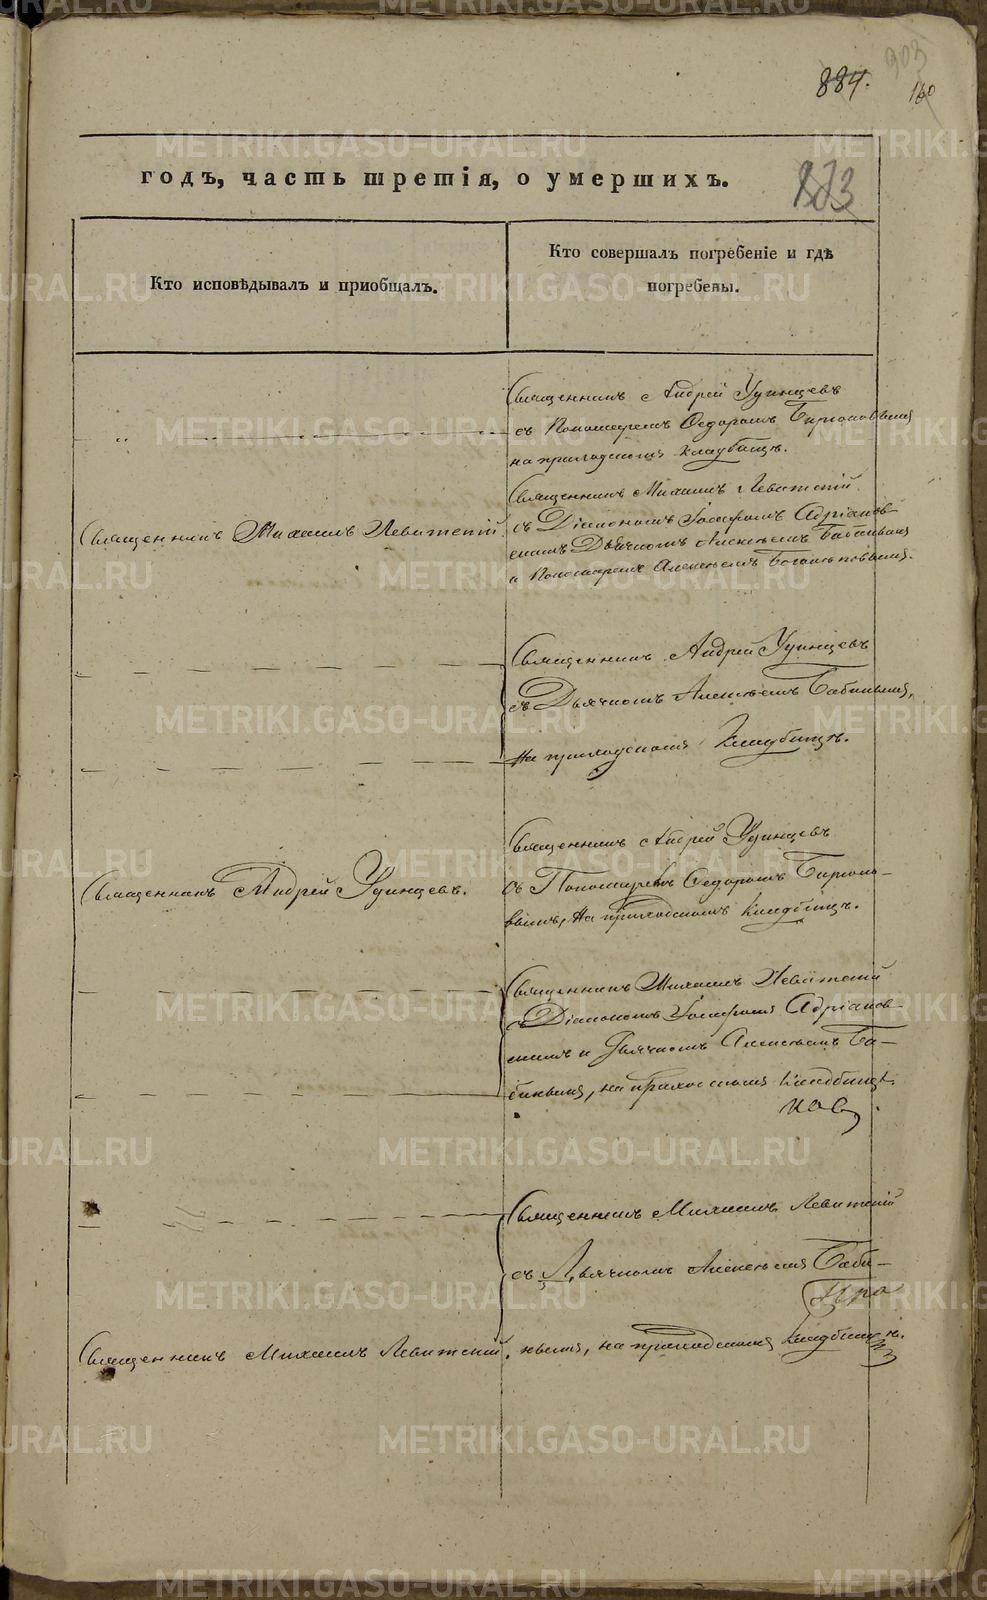 903
884.
160
873
годъ, часть третія, о умершихъ.
Кто исповѣдывалъ и пріобщалъ.
Кто совершалъ погребеніе и гдѣ
погребены.
Священникъ Андрей Удинцевъ
съ Пономаремъ Ѳедоромъ Бирюковымъ
на приходскомъ кладбищѣ.
Священникъ Михаилъ Левитскій
Священникъ Михаилъ Левитскій
съ Діакономъ Іоасафомъ Адріанов-
скимъ Дьячкомъ Алексѣемъ Бабинымъ
и Пономаремъ Алексѣемъ
Священникъ Андрей Удинцевъ
съ Дьячкомъ Алексѣемъ Бабинымъ,
на приходскомъ кладбищѣ.
Священникъ Андрей Удинцевъ.
Священникъ Андрей Удинцевъ
съ Пономаремъ Ѳедоромъ Бирюко-
вымъ, на приходскомъ кладбищѣ.
Священникъ Михаилъ Левитскій
съ Діакономъ Іоасафомъ Адріанов-
скимъ и Дьячкомъ Алексѣемъ Ба-
бинымъ, на приходскомъ кладбищѣ.
Священникъ Михаилъ Левитскій
съ Дьячкомъ Алексѣемъ Баби-
Священникъ Михаилъ Левитскій.
нымъ, на приходскомъ кладбищѣ.
METRIKI.GASO-URAL.RU